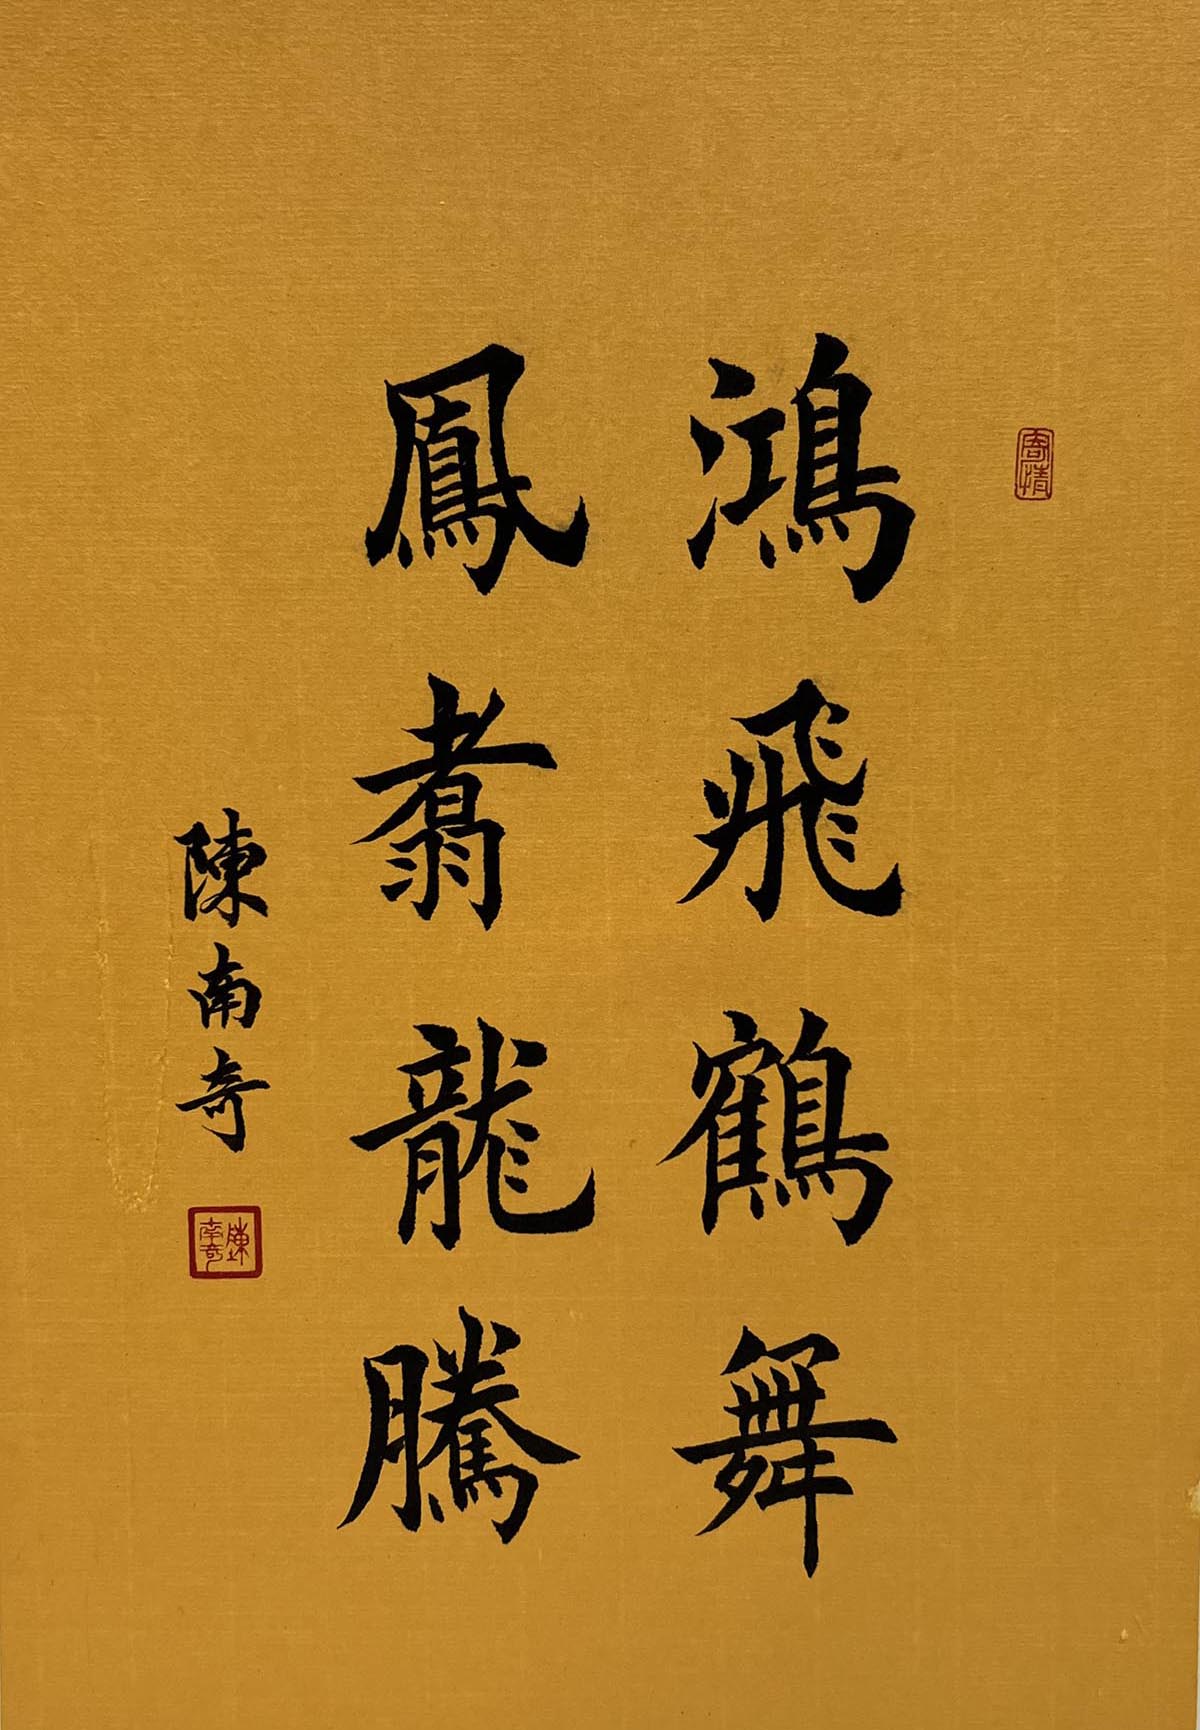 鴻飛鶴舞
鳳翥龍騰
陳南奇
寄情
陳南奇